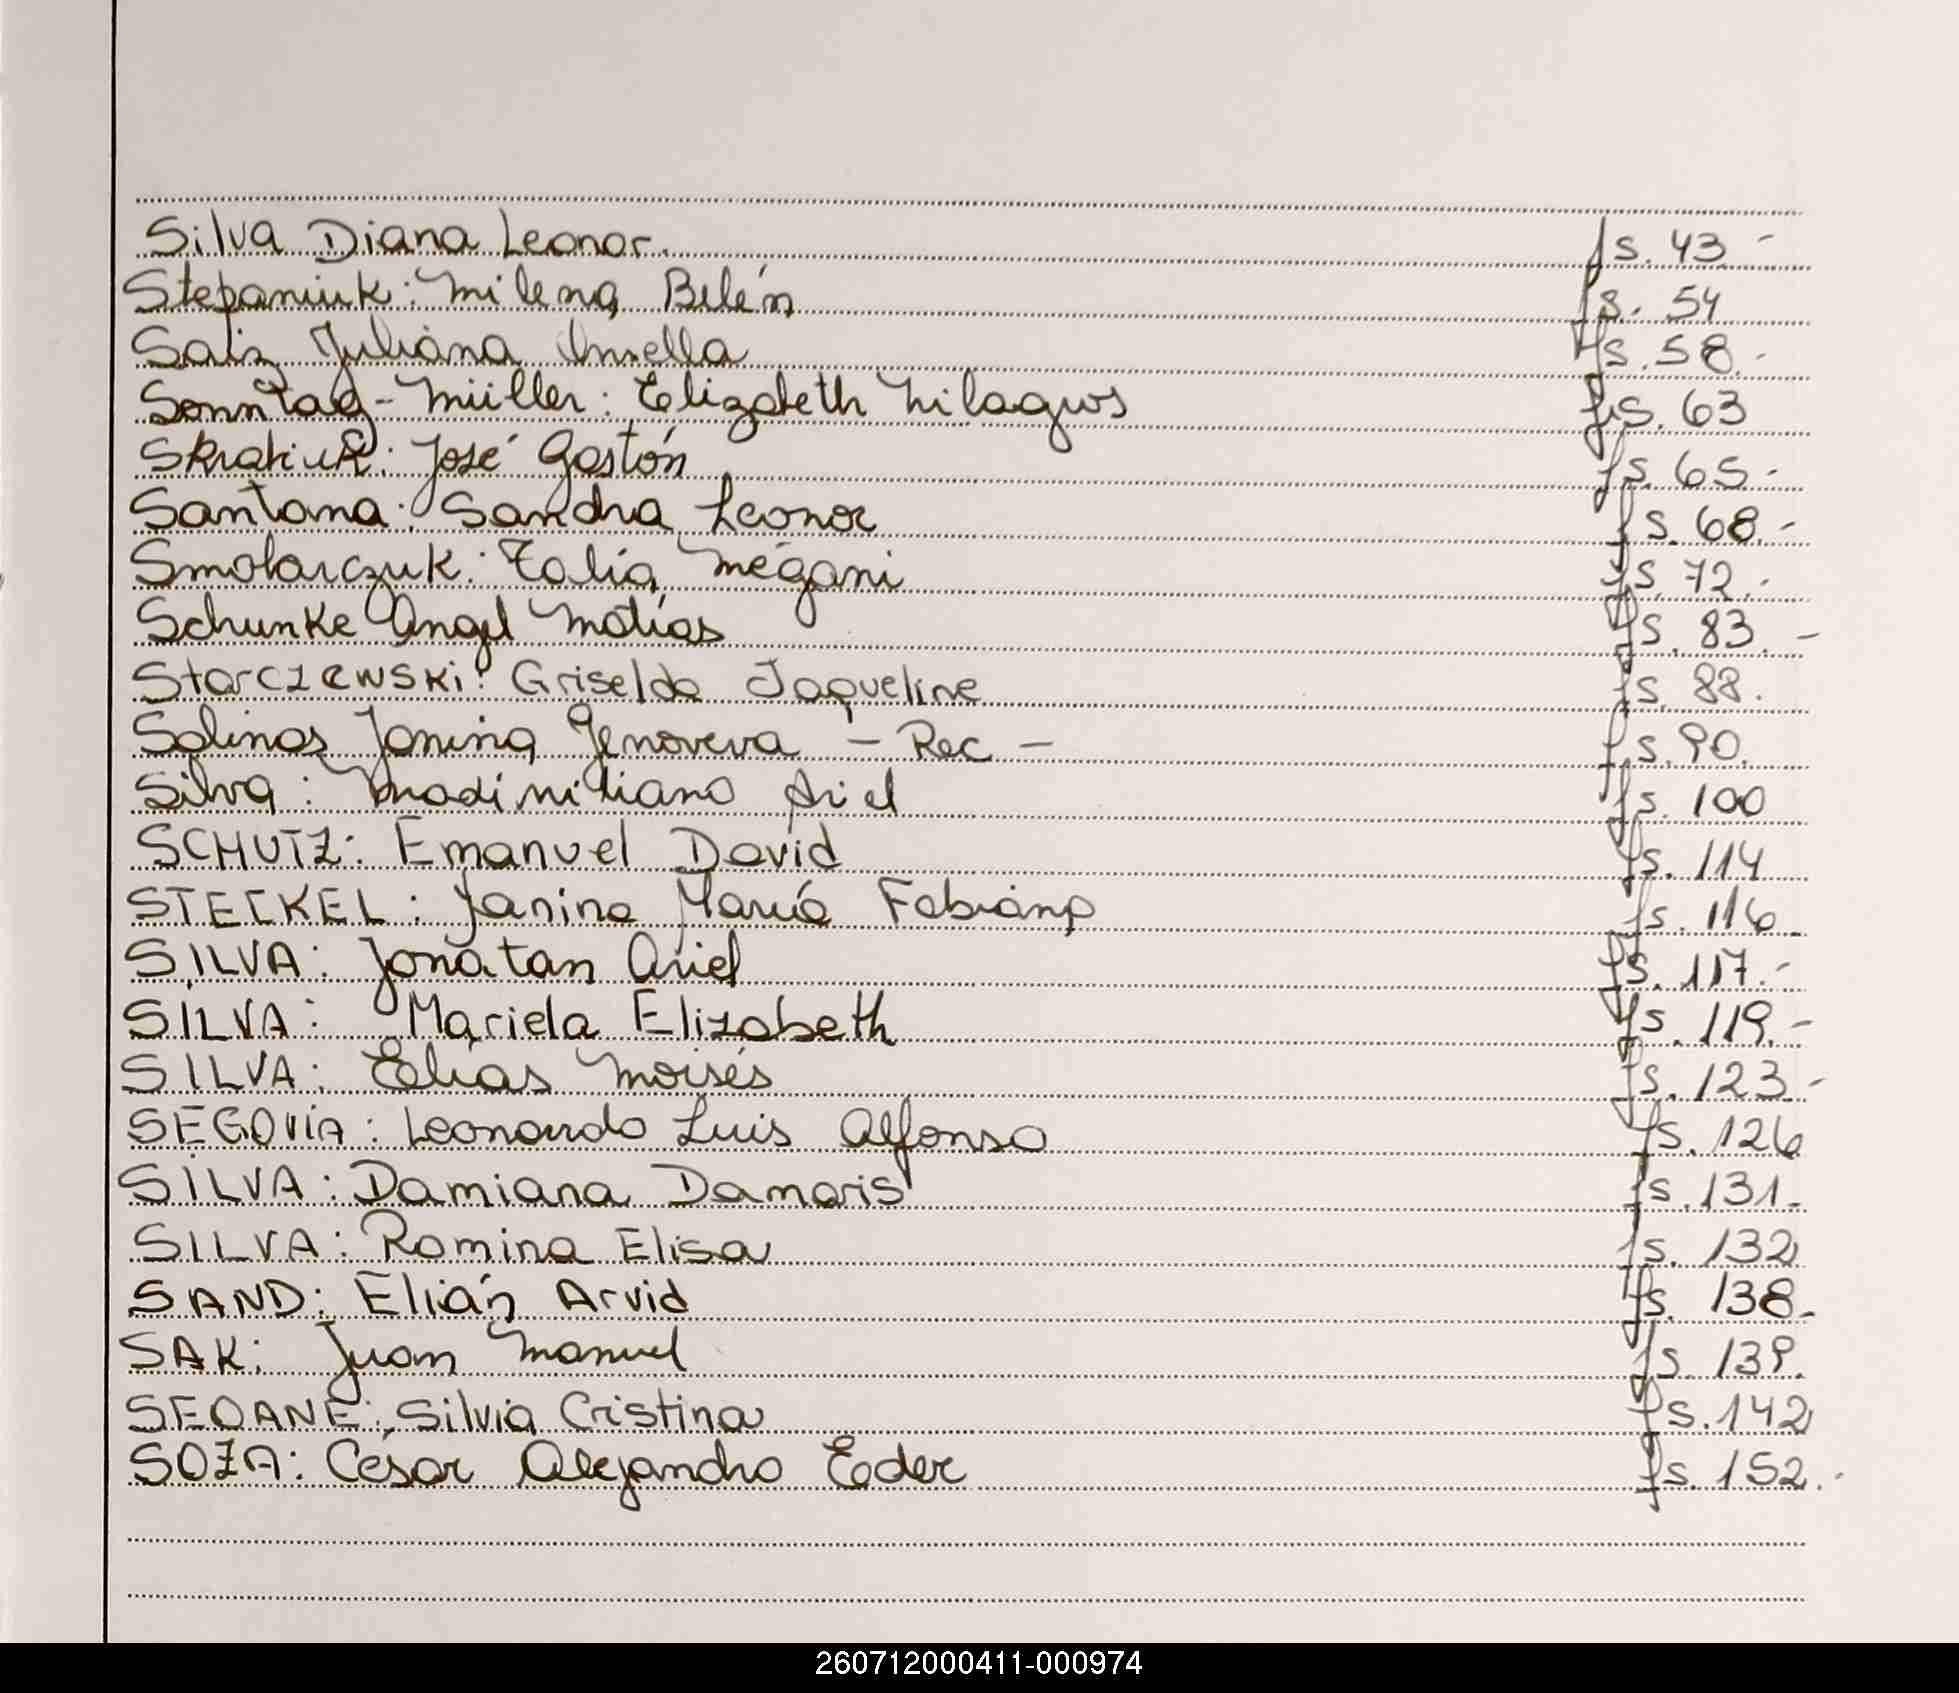 Silva Diana Leonor. fs. 43.-
Stepaniuk: Milena Belén fs. 54
Saiz Juliana Ornella fs. 58.-
Sonntag-Müller: Elizabeth Milagros fs. 63
Skratiuk: José Gastón fs. 65.-
Santana: Sandra Leonor fs. 68.-
Smolarczuk: Talia Mégani fs. 72.-
Schunke Angel Matías fs. 83.-
Starczewski: Griselda Jaqueline fs. 88.
Salinas Janina Genoveva - Rec - fs. 90.
Silva: Maximiliano Ariel fs. 100
SCHUTZ: Emanuel David fs. 114
STECKEL: Janina María Fabiana fs. 116.
SILVA: Jonatan Ariel fs. 117.-
SILVA: Mariela Elizabeth fs. 119.-
SILVA: Elías Moisés fs. 123.-
SEGOVIA: Leonardo Luis Alfonso fs. 126
SILVA: Damiana Damaris fs. 131.-
SILVA: Romina Elisa fs. 132
SAND: Elián Arvid fs. 138.-
SAK: Juan Manuel fs. 139.
SEOANE: Silvia Cristina fs. 142
SOZA: César Alejandro Eder fs. 152.-
260712000411-000974